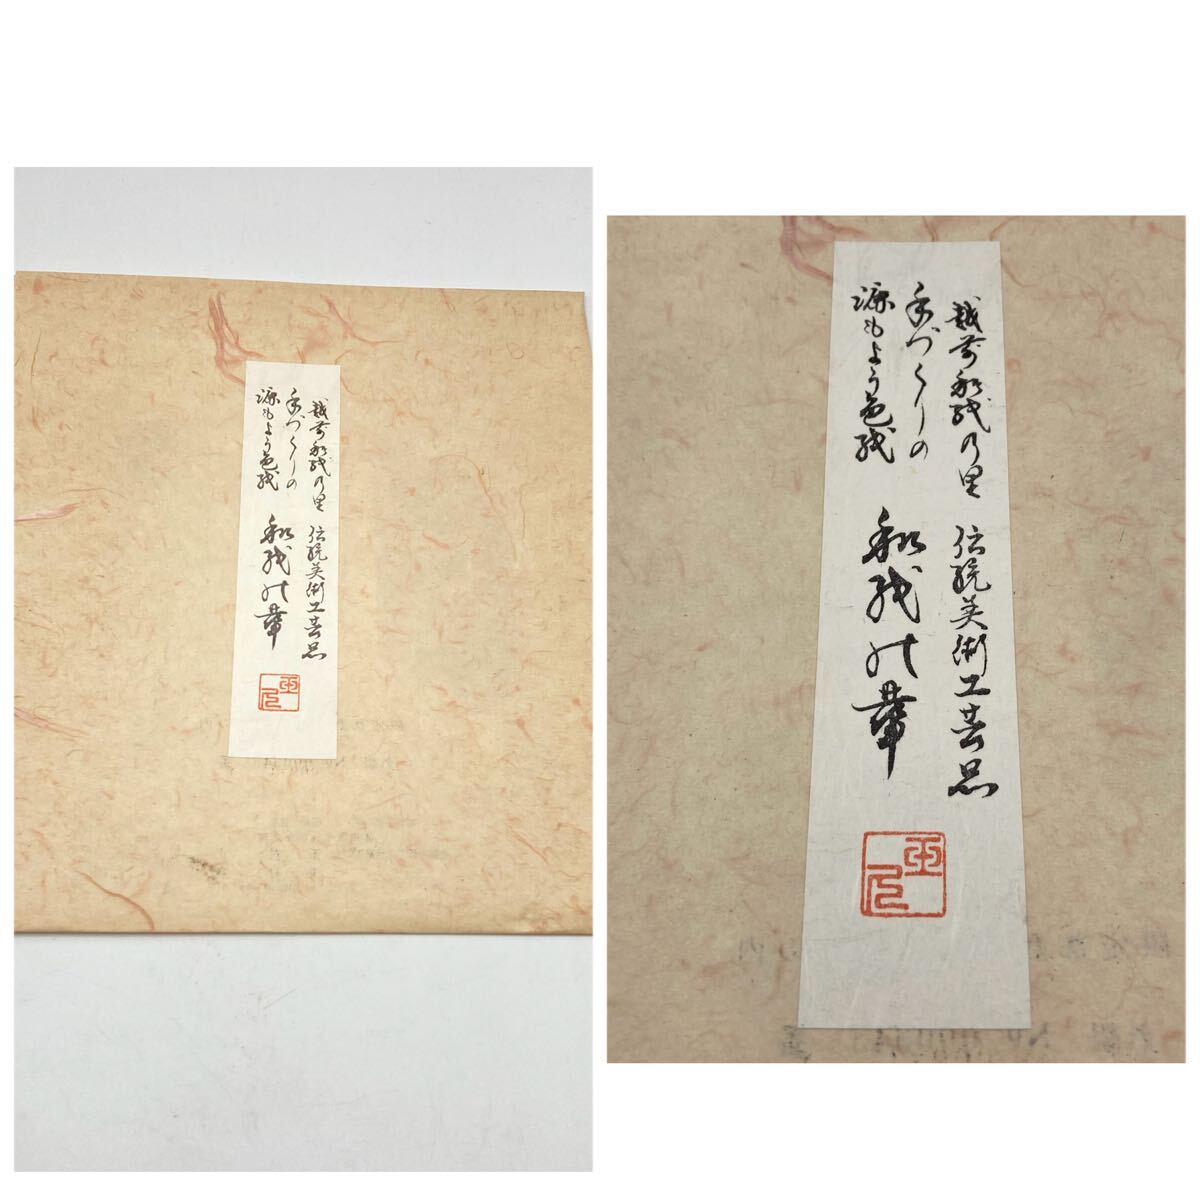 越前和紙乃里 伝統美術工芸品
手づくりの
漉もよう色紙
和紙の華
越前和紙乃里 伝統美術工芸品
手づくりの
漉もよう色紙
和紙の華